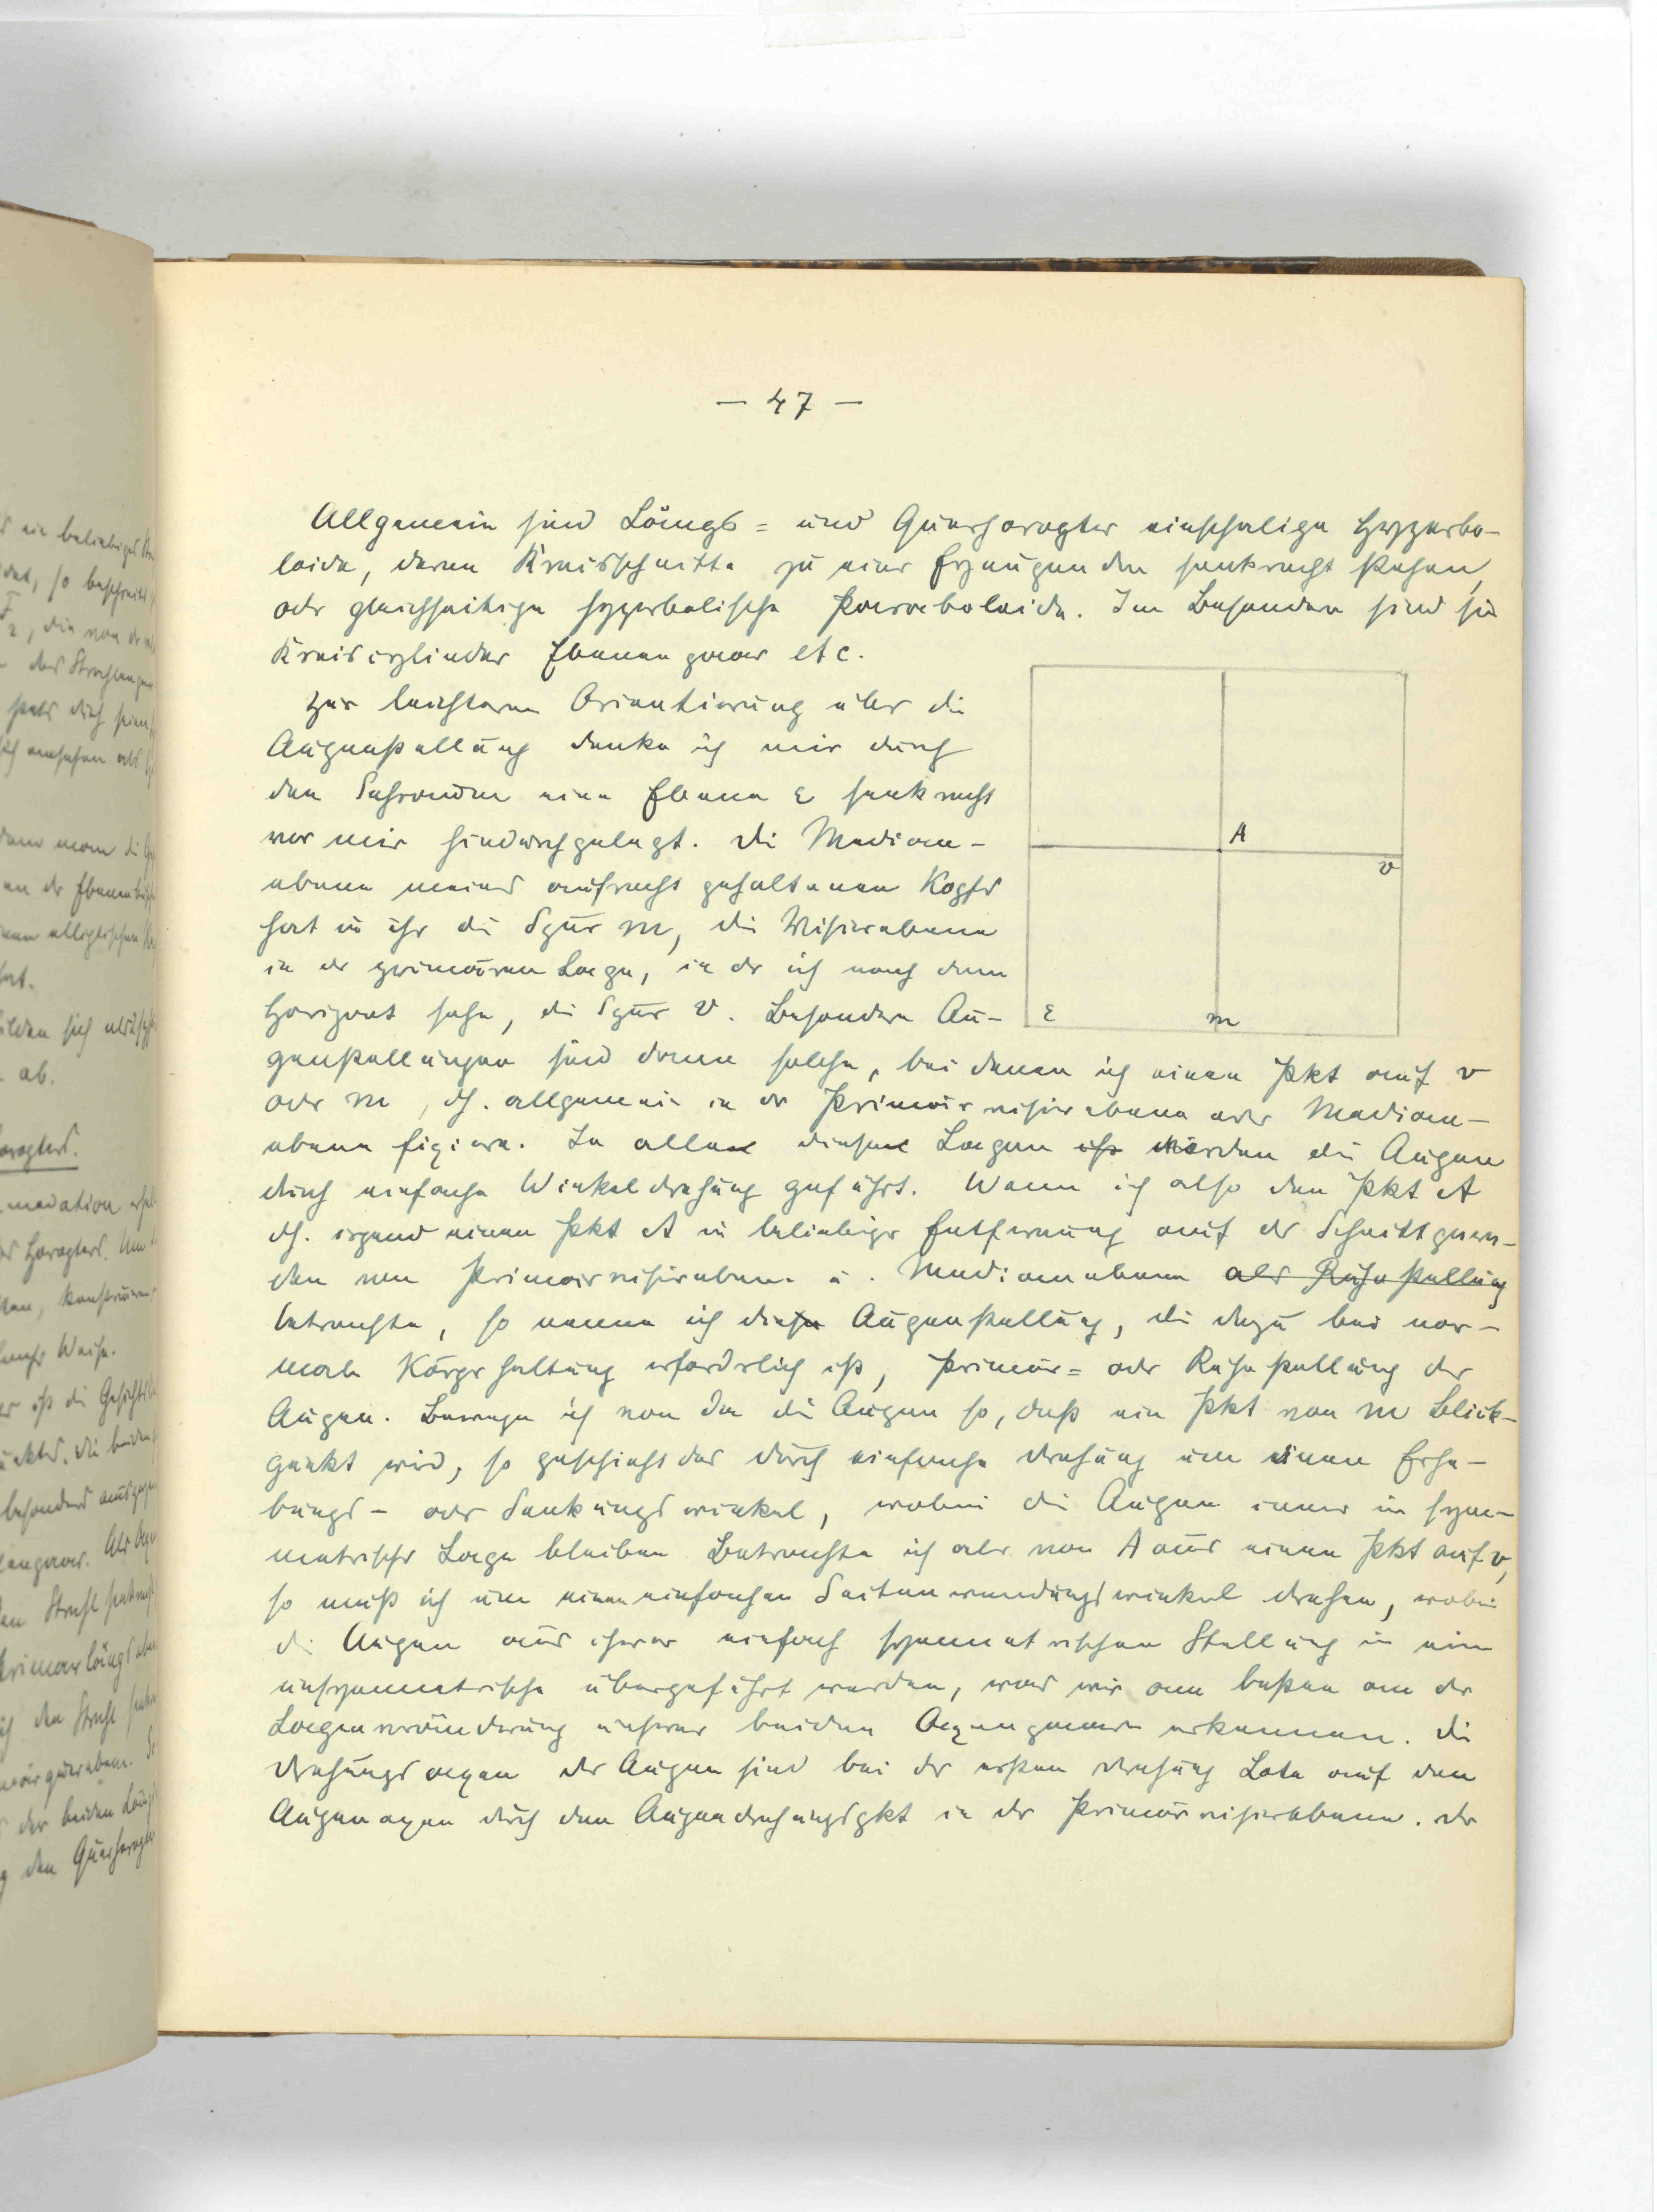 — 47 —
Allgemein sind Längs= und Querhoropter einschalige Hyperbo-
loide, deren Kreisschnitte zu einer Erzeugenden senkrecht stehen,
oder gleichseitige hyperbolische Paraboloide. Im Besondern sind sie
Kreiscylinder Ebenenpaar etc.
Zur leichteren Orientierung über die
Augenstellung denke ich mir durch
den Sehraum eine Ebene ε senkrecht
vor mir hindurchgelegt. Die Median-
ebene meines aufrecht gehaltenen Kopfes
hat in ihr die Spur m, die Visierebene
in der primären Lage, in der ich nach dem
Horizont sehe, die Spur v. Besondere Au-
genstellungen sind dann solche, bei denen ich einen Pkt auf v
oder m, dh. allgemein in der Primärvisierebene oder Median-
ebene fixiere. In allen diesen Lagen werden die Augen
durch einfache Winkeldrehung geführt. Wenn ich also den Pkt A
dh. irgend einen Pkt A in beliebiger Entfernung auf der Schnittgera-
den von Primärvisierebene u. Medianebene als Ruhestellung
betrachte, so nenne ich diese Augenstellung, die dazu bei nor-
maler Körperhaltung erforderlich ist, Primär= oder Ruhestellung der
Augen. Bewege ich von da die Augen so, daß ein Pkt von m Blick-
punkt wird, so geschieht das durch einfache Drehung um einen Erhe-
bungs- oder Senkungswinkel, wobei die Augen immer in sym-
metrischer Lage bleiben. Betrachte ich aber von A aus einen Pkt auf v,
so muß ich um einen einfachen Seitenwendungswinkel drehen, wobei
die Augen aus ihrer einfach symmetrischen Stellung in eine
unsymmetrische übergeführt werden, was wir am besten an der
Lagenveränderung unserer beiden Axenpaare erkennen. Die
Drehungsaxen der Augen sind bei der ersten Drehung Lote auf den
Augenaxen durch den Augendrehungspkt in der Primärvisierebene. Der
A
v
ε
m